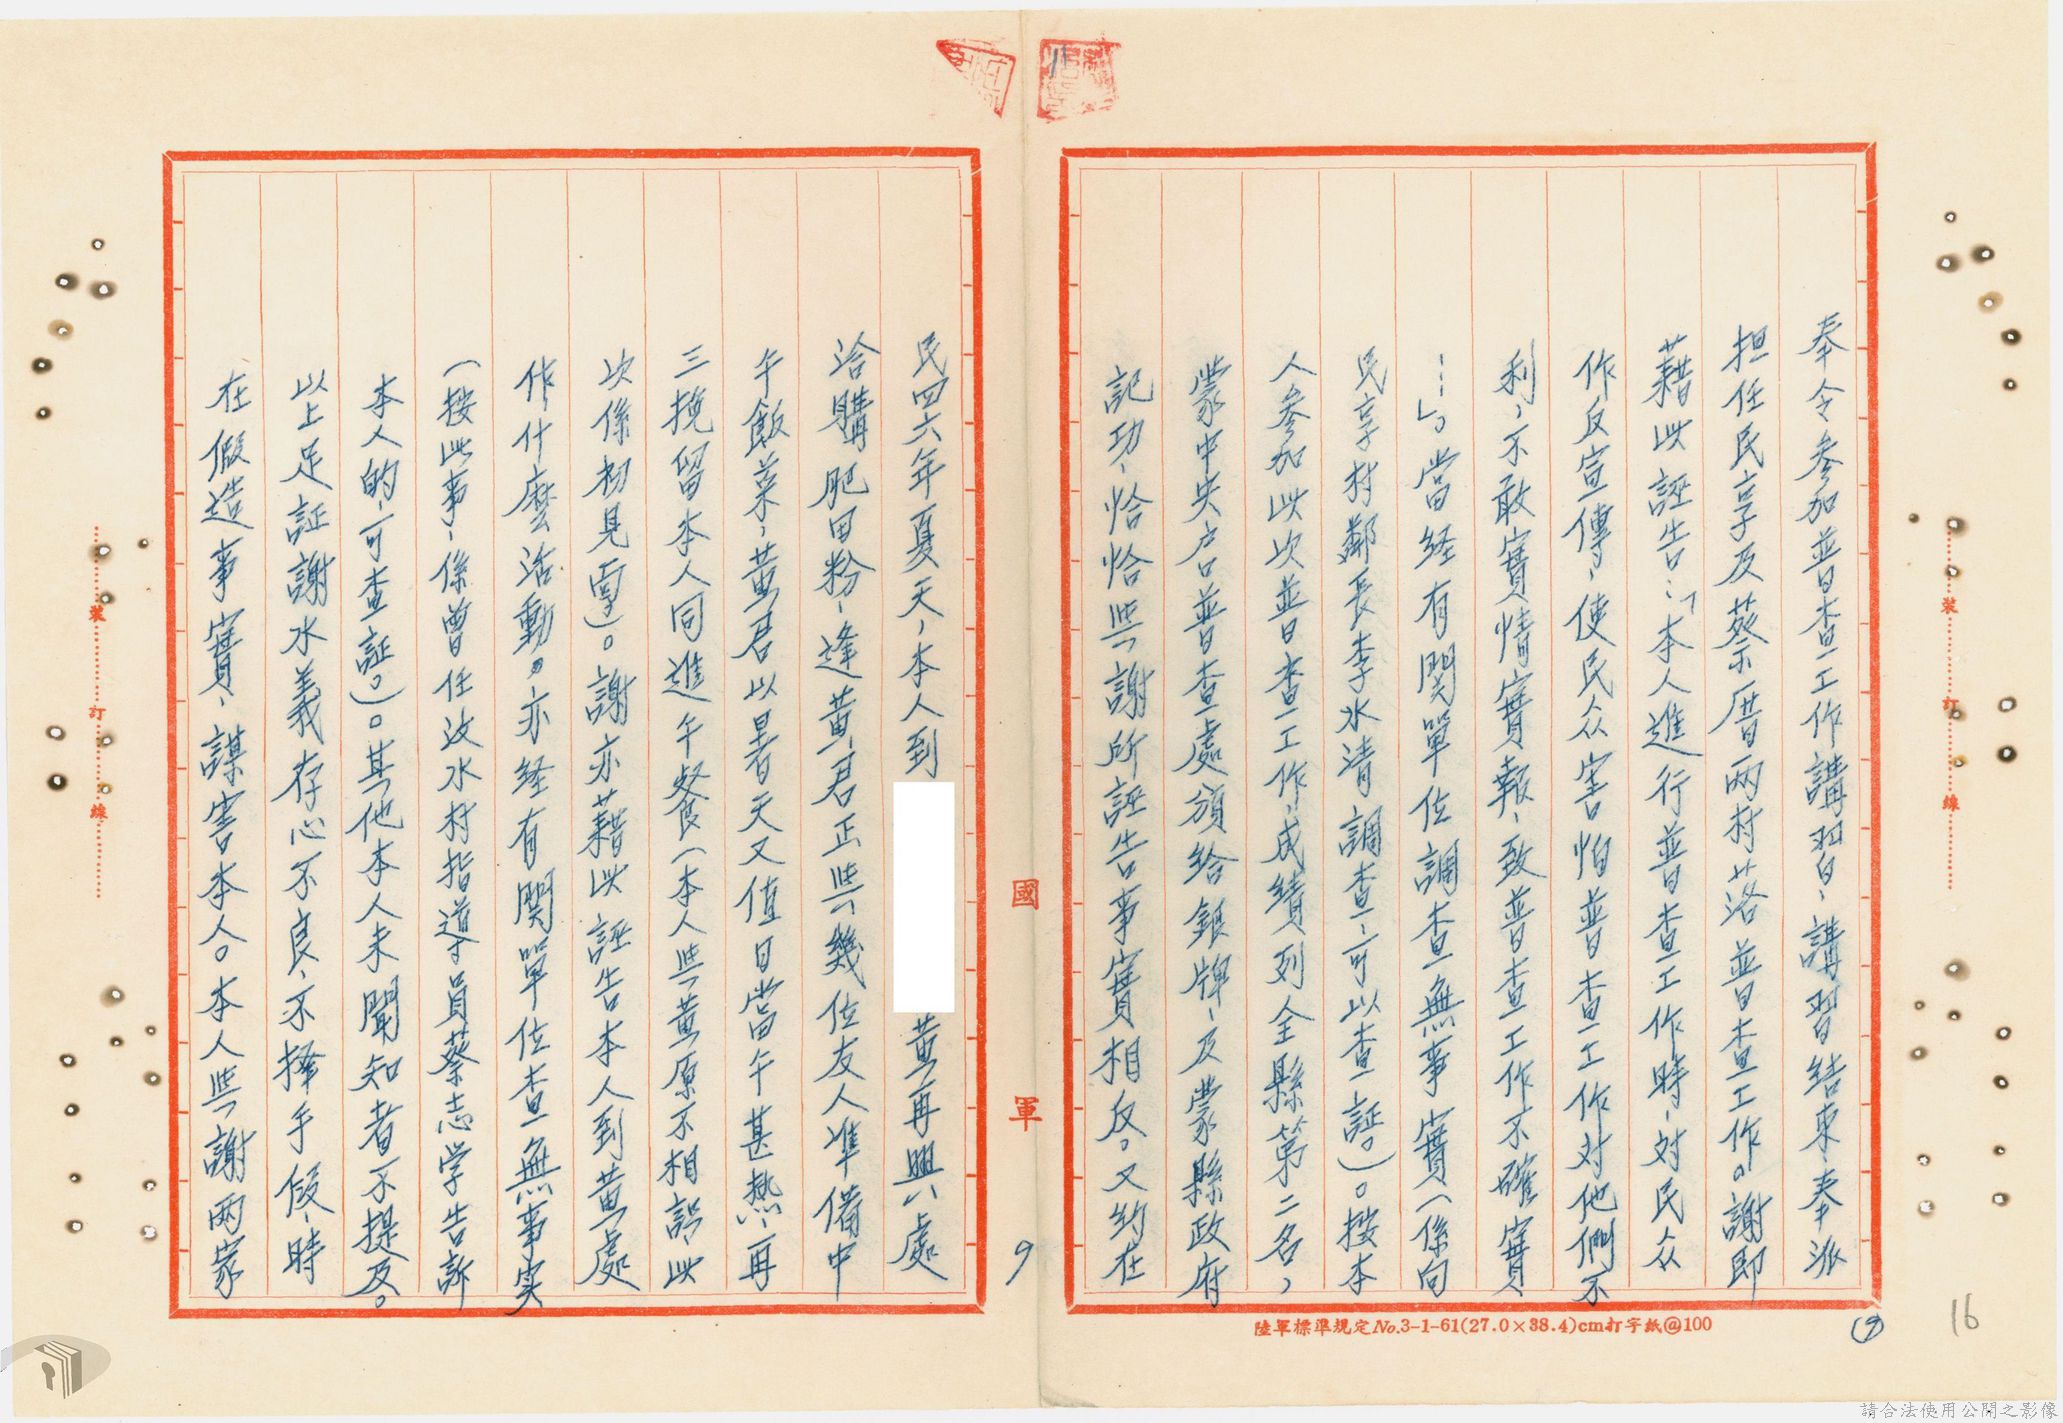 奉令參加普查工作講習、講習結束、奉派
担任民享及蔡厝兩村落普查工作。謝即
藉此誣告：「本人進行普查工作時、对民众
作反宣傳、使民众害怕普查工作对他們不
利，不敢實情實報，致普查工作不確實
……」。當経有関單位調查無事實（係向
民享村鄰長李水清調查、可以查証。）。按本
人參加此次普查工作，成績列全縣第二名，
蒙中央户口普查處頒給銀牌、及蒙縣政府
記功、恰恰与謝所誣告事實相反。又約在
民四六年夏天，本人到
黃再興處
洽購肥田粉、逢黃君正与幾位友人準備中
午飯菜、黃君以暑天又值日當午甚热、再
三挽留本人同進午餐（本人与黃原不相認此
次係初見面）。謝亦藉此誣告本人到黃處
作什麼活動。亦経有関單位查無事実
（按此事、係曾任汶水村指導員蔡志学告訴
本人的，可查証。）。其他本人未聞知者不提及。
以上足証謝水義存心不良、不擇手假、時
在假造事實、謀害本人。本人与謝兩家
國軍
9
裝訂線
裝訂線
陸軍標準規定No.3-1-61(27.0×38.4)cm打字紙@100
(9)
16
請合法使用公開之影像